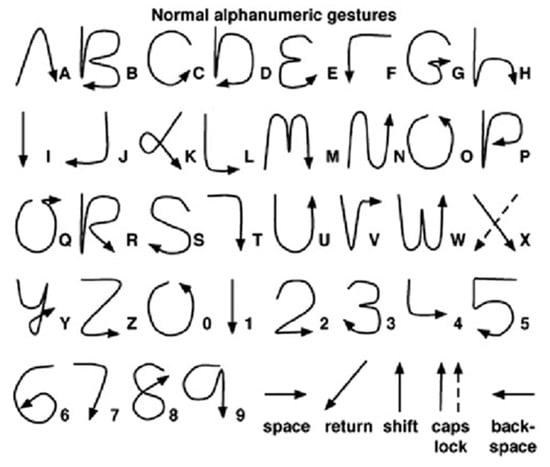 Normal alphanumeric gestures
A B C D E F G H
I J K L M N O P
Q R S T U V W X
Y Z 0 1 2 3 4 5
6 7 8 9 space return shift caps lock back-space